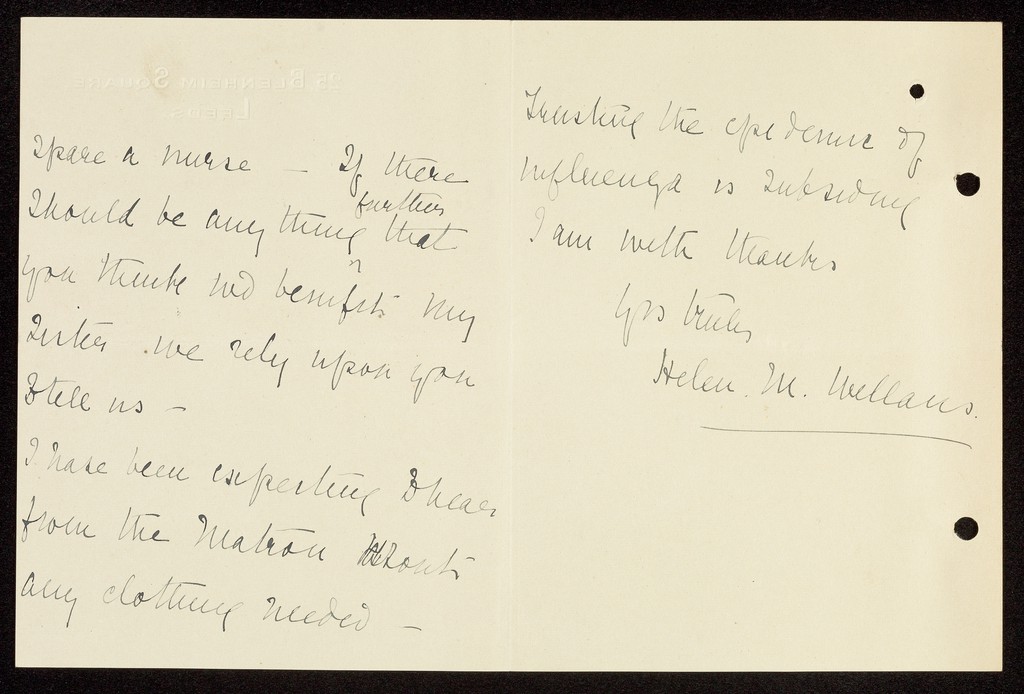 25 BLENHEIM SQUARE
LEEDS.
spare a nurse — If there
should be any thing further that
you think wd benefit my
Sister. we rely upon you
to tell us —
I have been expecting to hear
from the Matron about
any clothing needed —
Trusting the epidemic of
influenza is subsiding
I am with thanks
Yrs truly
Helen. M. Wellans.